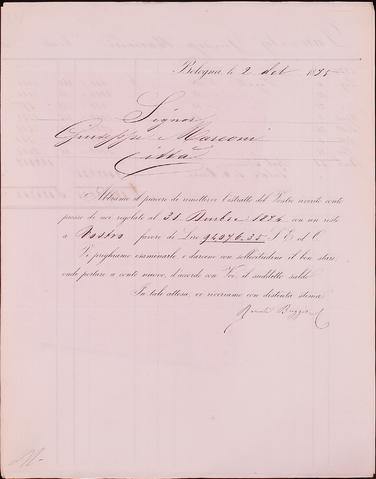 Bologna, li 2 1875
Signor
Giuseppe Marconi
Città
Abbiamo il piacere di rimettervi l'estratto del Vostro accorto conto
presso di noi regolato al 31 Dmbre 1874 con un resto
a Vostro favore di Lire 94076.35 S. E. ed O.
Vi preghiamo esaminarlo, e darcene con sollecitudine il ben stare,
onde portare a conto nuovo, d'accordo con Voi, il suddetto saldo.
In tale attesa, vi riveriamo con distinta stima